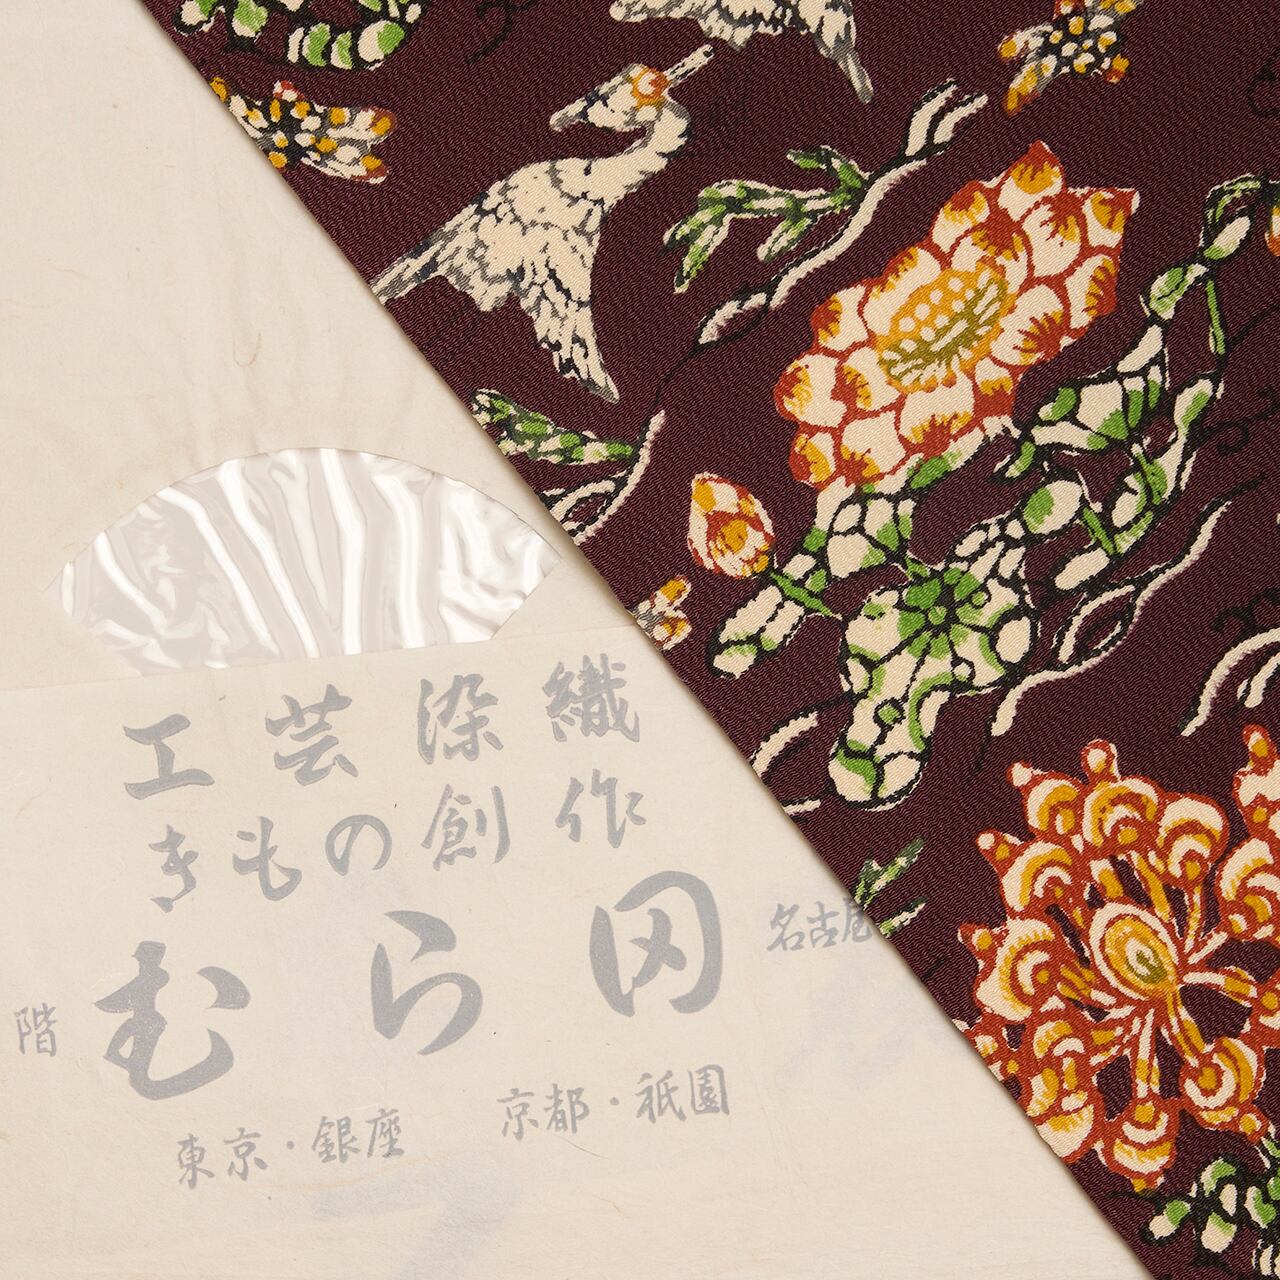 工芸染織
きもの創作
むら田
名古屋
階
東京・銀座　京都・祇園